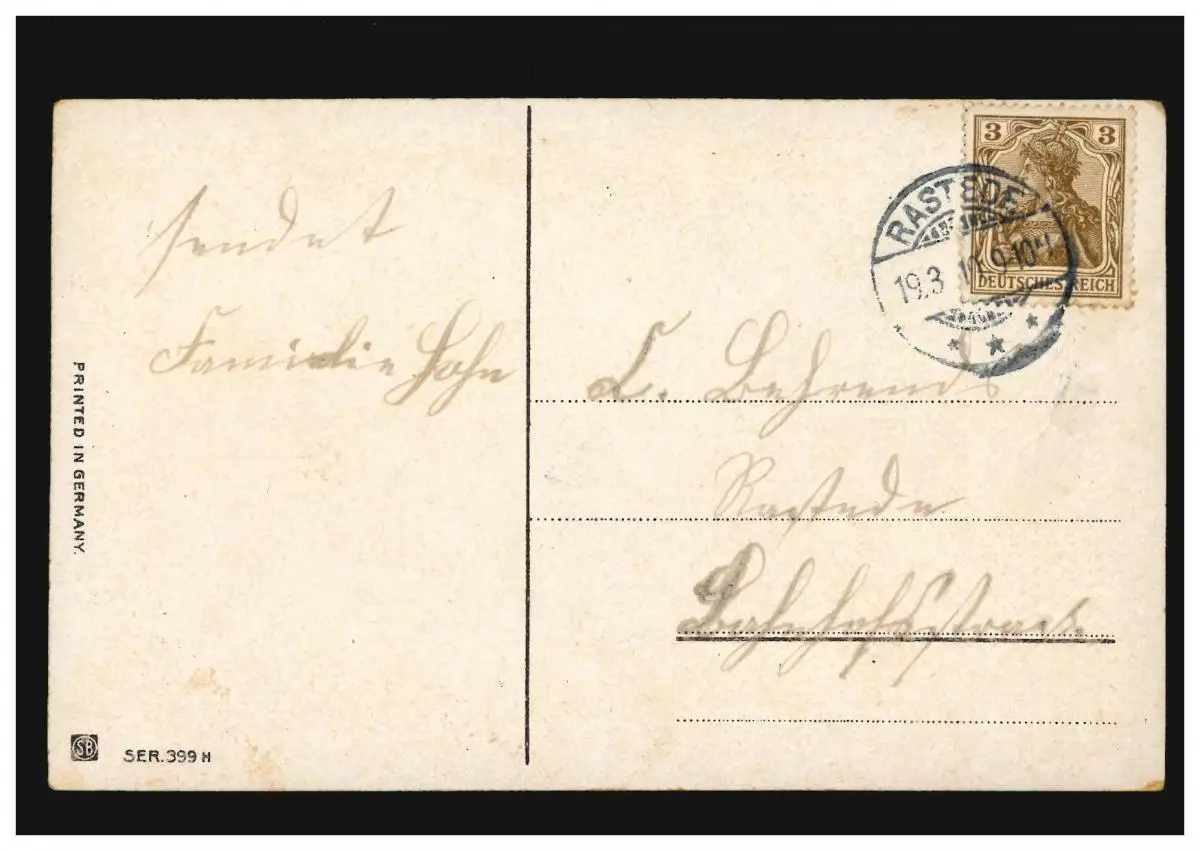 sendet
Familie Hohn
PRINTED IN GERMANY.
SB
SER. 399 H
3 3
DEUTSCHES REICH
RASTEDE
19.3 10 9-10
L. Behrends
Rastede
Bahnhofsstraße